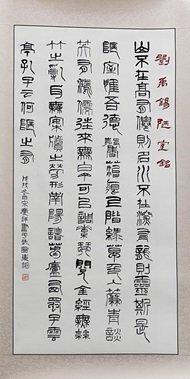 劉禹錫陋室銘
山不在高有僊則名水不在深有龍則靈斯是
陋室惟吾德馨苔痕上階綠草色入簾青談
笑有鴻儒往來無白丁可以調素琴閱金經無絲
竹之亂耳無案牘之勞形南陽諸葛廬西蜀子雲
亭孔子云何陋之有